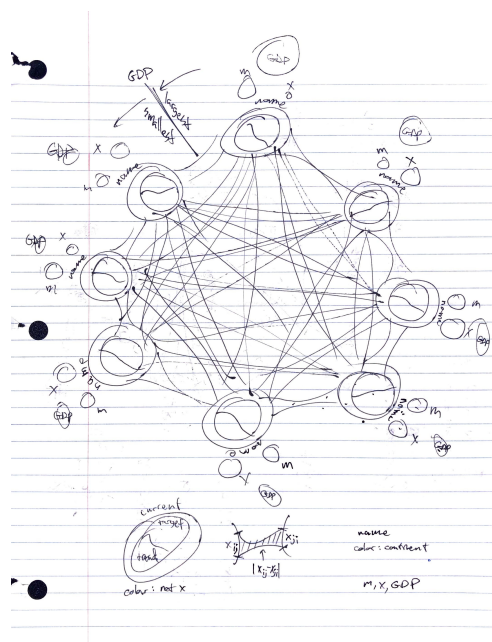 GDP
largest
smallest
m
GDP
x
name
GDP
m
x
name
GDP
x
m
name
GDP
x
m
name
name
m
x
GDP
name
x
m
GDP
name
m
x
GDP
name
m
x
GDP
current
target
trend
colour: net x
xij
xji
|xij-xji|
name
color: continent
m, x, GDP